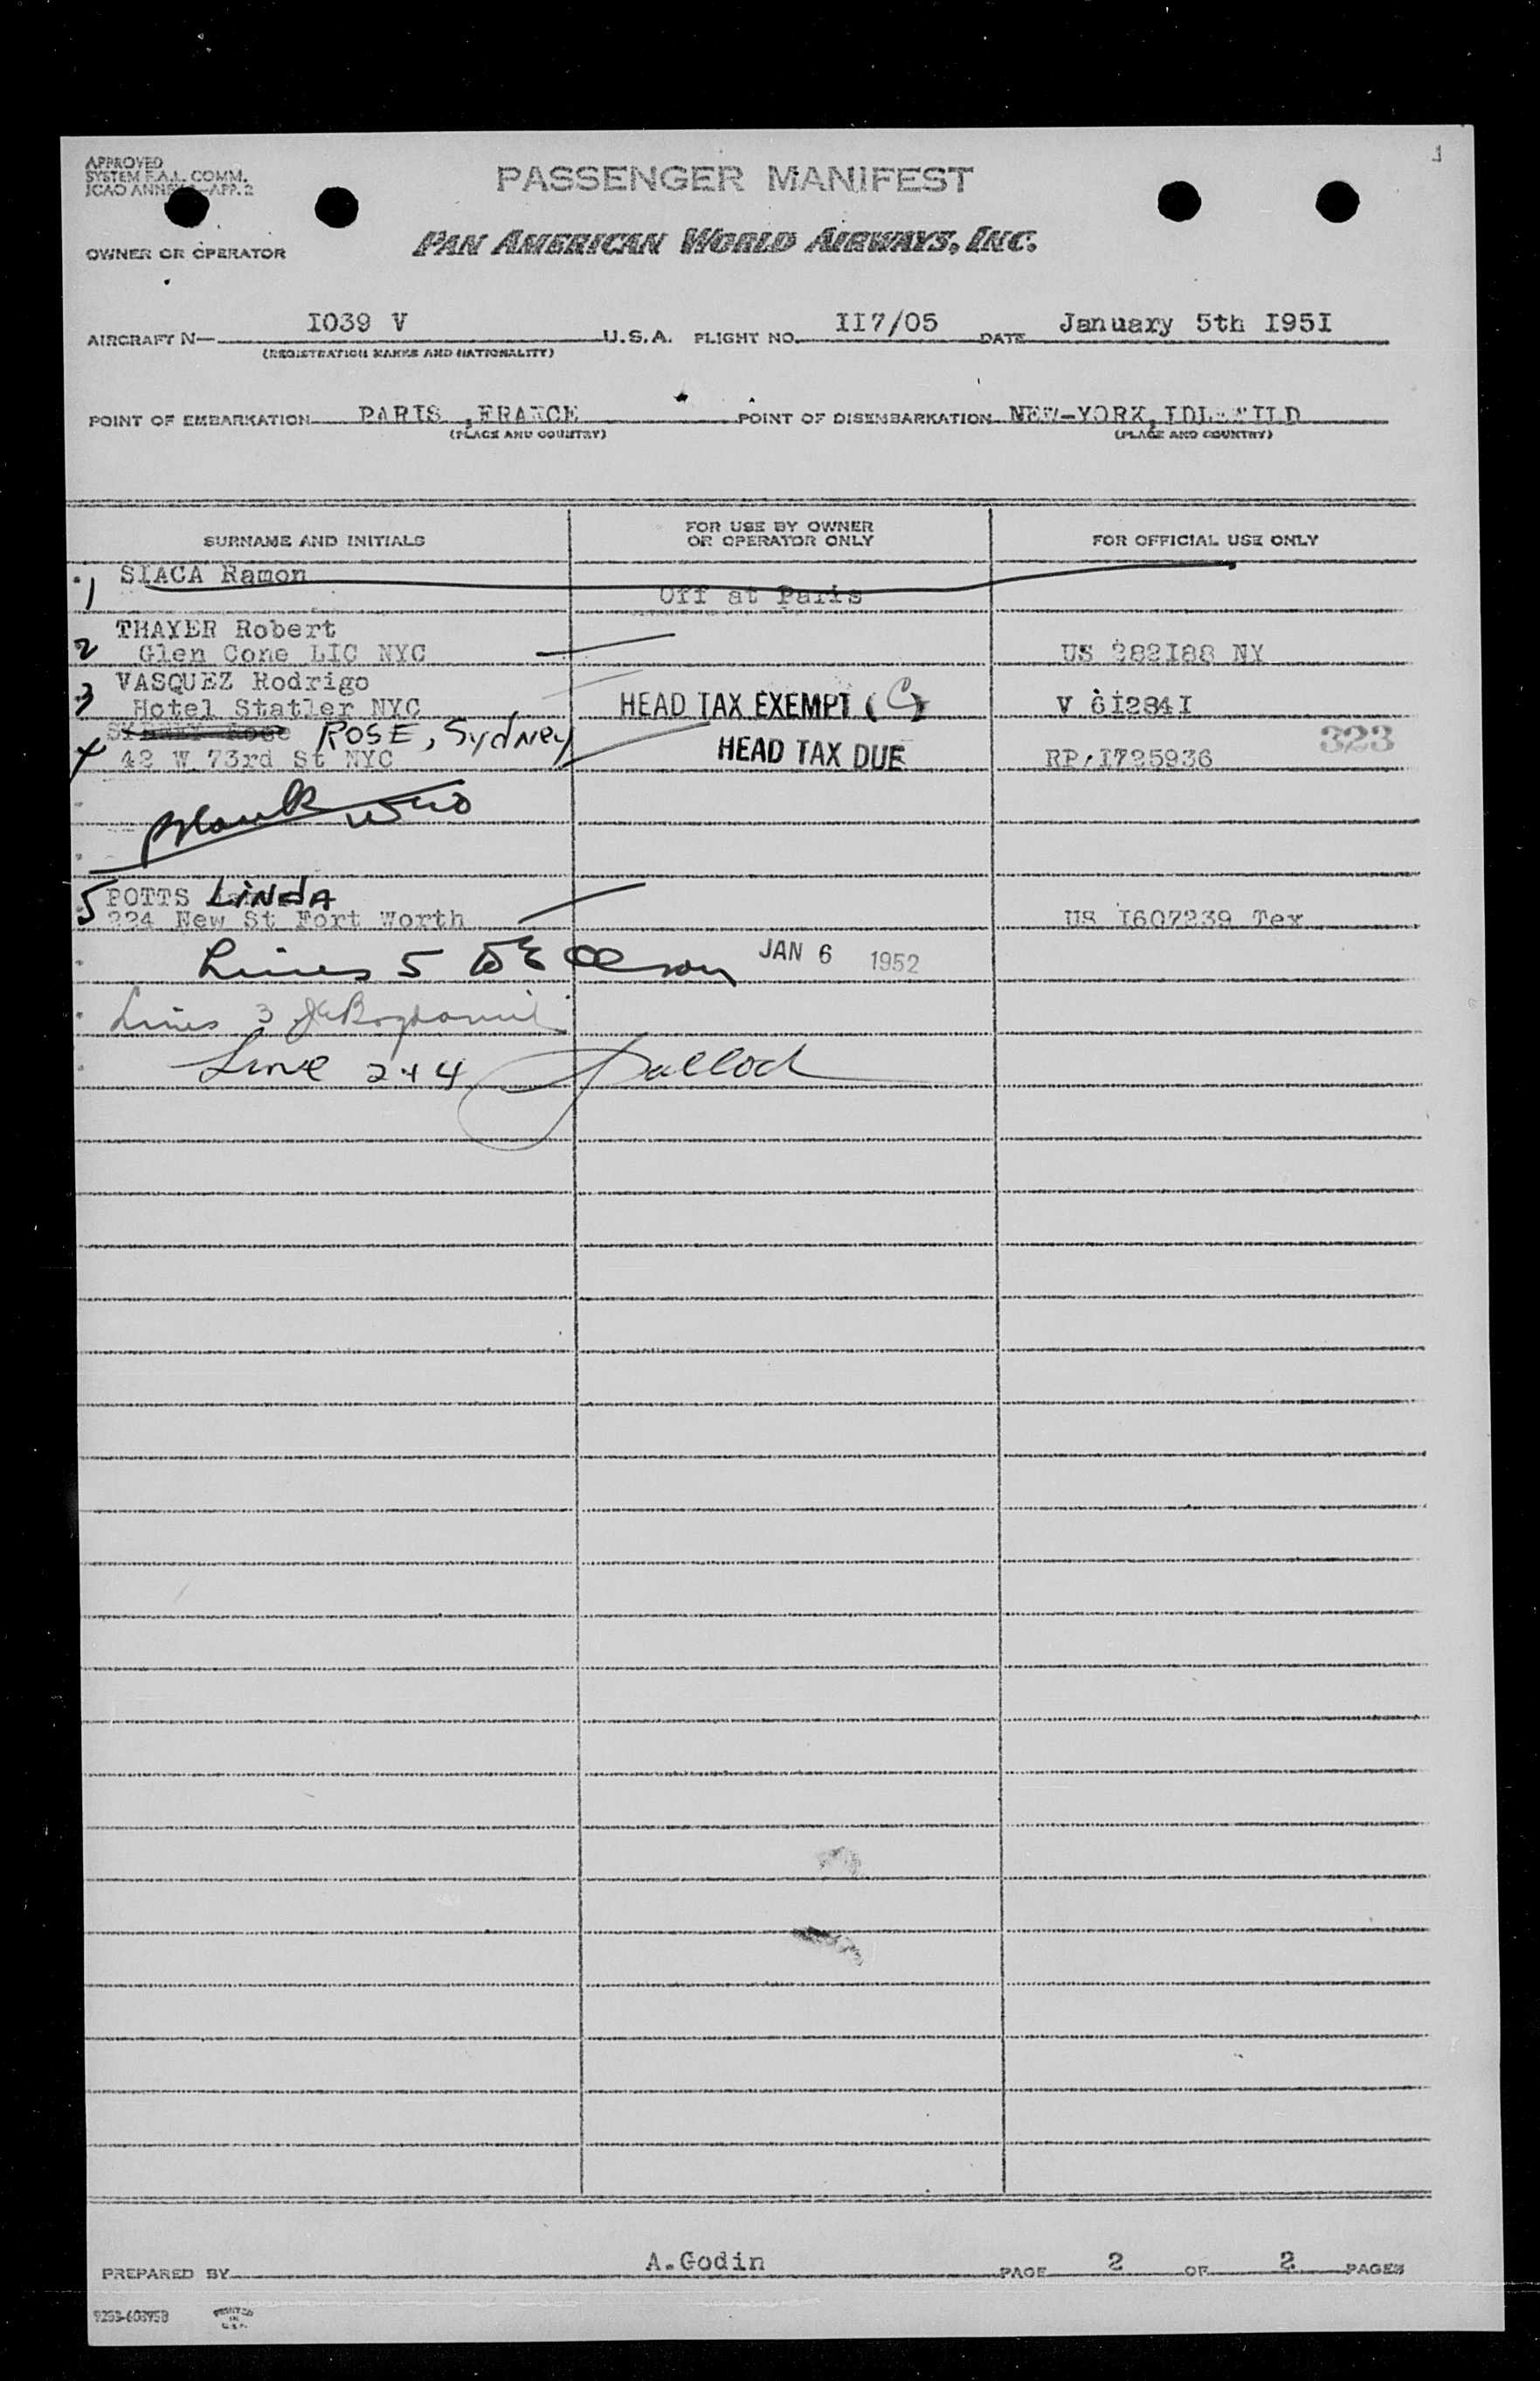 1
APPROVED
SYSTEM F.A.L. COMM.
ICAO ANNEX APP. 2
PASSENGER MANIFEST
OWNER OR OPERATOR
PAN AMERICAN WORLD AIRWAYS, INC.
AIRCRAFT N— I039 V U.S.A. FLIGHT NO. II7/05 DATE January 5th I95I
(REGISTRATION MARKS AND NATIONALITY)
POINT OF EMBARKATION PARIS ,FRANCE POINT OF DISEMBARKATION NEW-YORK, IDLEWILD
(PLACE AND COUNTRY) (PLACE AND COUNTRY)
SURNAME AND INITIALS FOR USE BY OWNER OR OPERATOR ONLY FOR OFFICIAL USE ONLY
1 SIACA Ramon
Off at Paris
THAYER Robert
2 Glen Cone LIC NYC US 282I88 NY
VASQUEZ Rodrigo
3 Hotel Statler NYC HEAD TAX EXEMPT (C) V 6I284I
Rose ROSE, Sydney 323
4 42 W 73rd St NYC HEAD TAX DUE RP I725936
5 POTTS LINDA
224 New St Fort Worth US I607239 Tex
Lines 5 JAN 6 1952
Lines 3
Line 2+4
PREPARED BY A.Godin PAGE 2 OF 2 PAGES
9253-60395B PRINTED IN U.S.A.